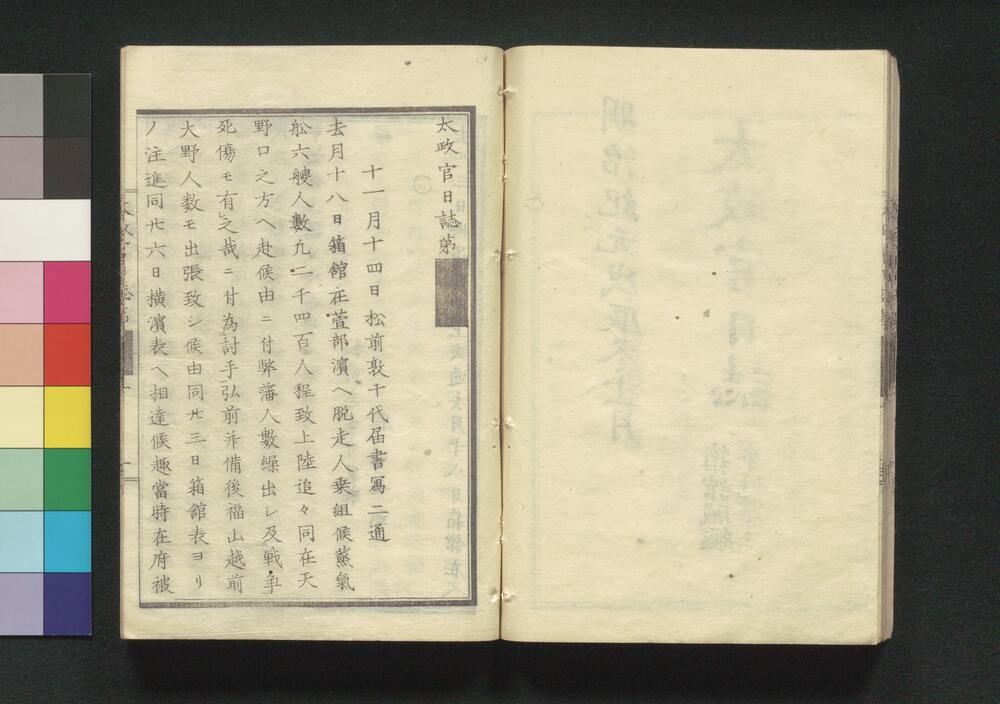 太政官日誌第
十一月十四日松前敦千代届書寫二通
去月十八日箱館在萱部濱へ脱走人乗組候蒸氣
舩六艘人數凡二千四百人程致上陸追々同在天
野口之方へ赴候由ニ付弊藩人數繰出シ及戰争
死傷モ有之哉ニ付為討手弘前并備後福山越前
大野人數モ出張致シ候由同廿三日箱館表ヨリ
ノ注進同廿六日横濱表へ相達候趣當時在府被